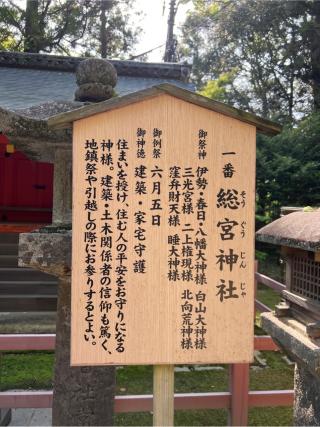 一番 総宮神社
そうぐうじんじゃ
御祭神
伊勢・春日・八幡大神様 白山大神様
三光宮様 二上権現様 北向荒神様
窪弁財天様 睡大神様
御例祭
六月五日
御神徳
建築・家宅守護
住まいを授け、住む人の平安をお守りになる
神様。建築・土木関係者の信仰も篤く、
地鎮祭や引越しの際にお参りするとよい。